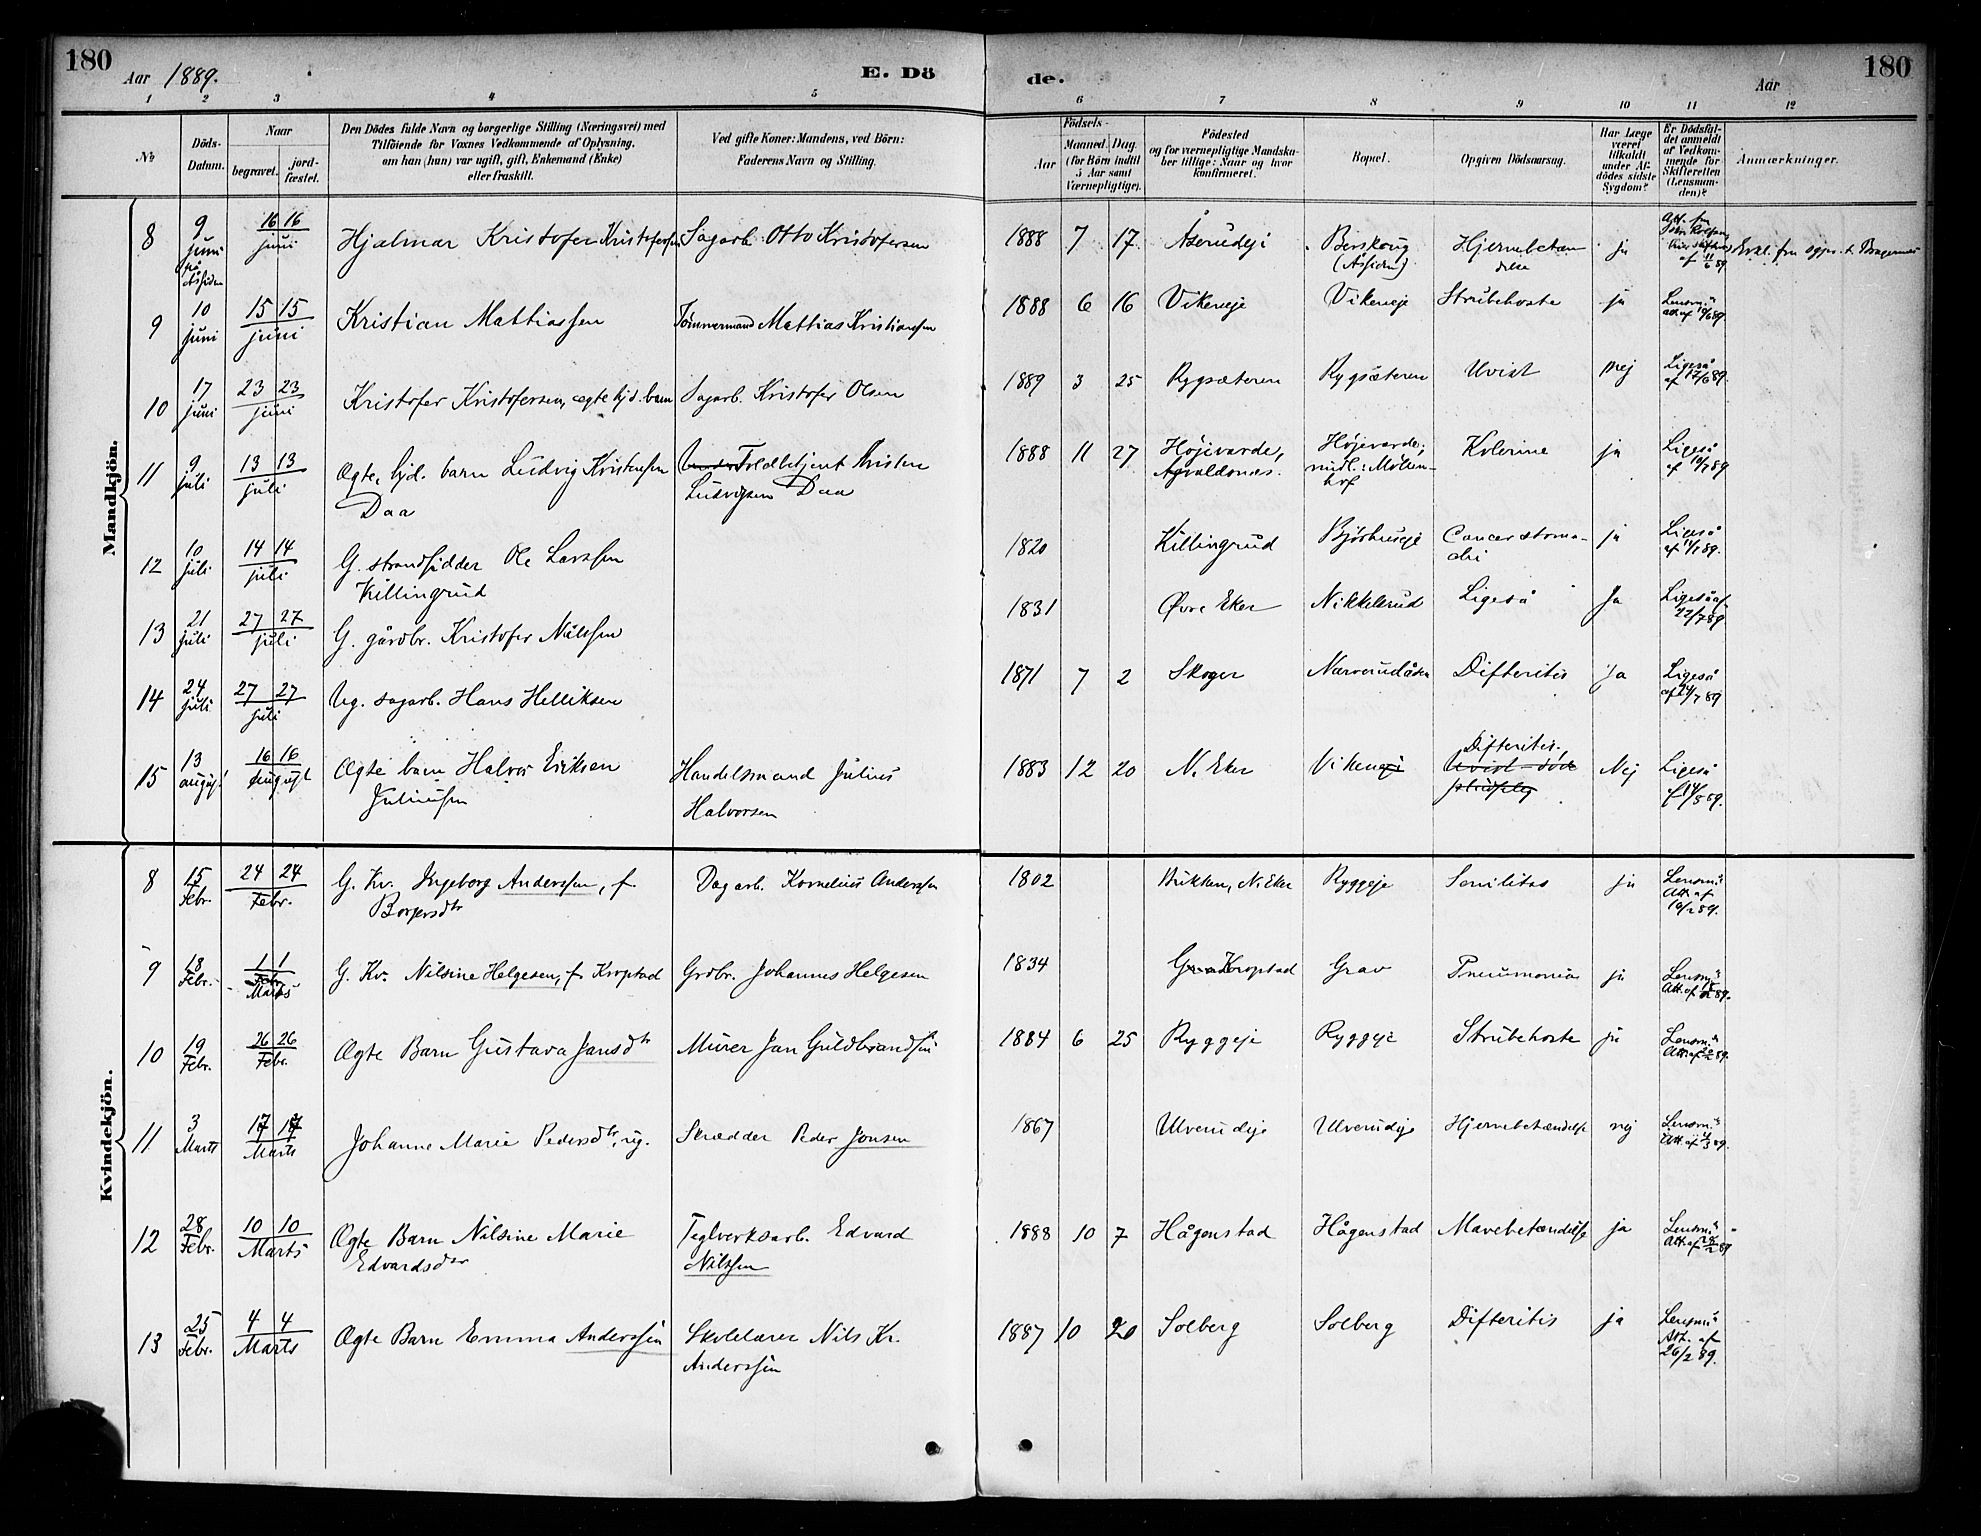 180
Aar 1889.
E. Dö
de.
Aar
180
1 2 3 4 5 6 7 8 9 10 11 12
№
Döds-
Datum.
Naar
begravet.
jord-
fæstet.
Den Dödes fulde Navn og borgerlige Stilling (Næringsvei) med
Tilföiende for Voxnes Vedkommende af Oplysning,
om han (hun) var ugift, gift, Enkemand (Enke)
eller fraskilt.
Ved gifte Koner: Mandens, ved Börn:
Faderens Navn og Stilling.
Födsels-
Aar
Maaned. Dag.
(for Börn indtil
5 Aar samt
Værnepligtige).
Födested
og for værnepligtige Mandska-
ber tillige: Naar og hvor
konfirmeret.
Bopæl.
Opgiven Dödsaarsag.
Har Læge
været
tilkaldt
under Af-
dödes sidste
Sygdom?
Er Dödsfal-
det anmeldt
af Vedkom-
mende for
Skifteretten
(Lensman-
den)?
Anmærkninger.
Mandkjön.
8 9 juni på Assiden 16 16 juni Hjalmar Kristofer Kristofersen Sagarb. Otto Kristofersen 1888 7 17 Åserudeje Berskoug (Assiden) Hjernebetændelse ja
9 10 juni 15 15 juni Kristian Mattiassen Tömmermand Mattias Kristianssen 1888 6 16 Vikeneje Vikeneje Strubehoste ja Lensm.s att. af 10/6 89.
10 17 juni 23 23 juni Kristofer Kristofersen, ægte hjd. barn Sagarb. Kristofer Olsen 1889 3 25 Rygsæteren Rygsæteren Uvist Nej Ligeså af 17/6 89.
11 9 juli 13 13 juli Ægte, hjd. barn Ludvig Kristensen Toldbetjent Kristen
Daa Ludvigsen Daa 1888 11 27 Höjevarde, Avaldsnes. Höjevarde, midl.: Möllenhof Kolerine ja Ligeså af 10/7 89
12 10 juli 14 14 juli G. strandsidder Ole Larssen
Killingrud 1820 Killingrud Björhuseje Cancer stomachi ja Ligeså af 11/7 89.
13 21 juli 27 27 juli G. gårdbr. Kristofer Nilssen 1831 Øvre Eker Nikkelsrud Ligeså Ja Ligeså af 22/7 89
14 24 juli 27 27 juli Ug. sagarb. Hans Helliksen 1871 7 2 Skoger Narverudåsen Difteritis Ja Ligeså af 24/7 89
15 13 august 16 16 august Ægte barn Halvor Eriksen
Juliussen Handelsmand Julius
Halvorsen 1883 12 20 N. Eker Vikeneje Difteritis. Uvist - död pludselig Nej Ligeså af 14/8 89.
Kvindekjön.
8 15 Febr. 24 24 Febr. G. Kv. Ingeborg Anderssen, f.
Borgersdtr Dagarb. Kornelius Anderssen 1802 Bukken, N. Eker Ryggeje Senilitas ja Lensm.s Att. af 19/2 89.
9 18 Febr. 1 1 Febr. Marts G. Kv. Nilsine Helgesen, f. Kroptad Grdbr. Johannes Helgesen 1834 Kroptad Grav Pneumonia ja Lensm.s Att. af 89.
10 19 Febr. 26 26 Febr. Ægte Barn Gustava Jansdtr Murer Jan Guldbrandsen 1884 6 25 Ryggeje Ryggeje Strubehoste ja Lensm.s Att. af 89.
11 3 Marts 17 17 Marts Johanne Marie Pedersdtr, ug. Skrædder Peder Jonsen 1867 Ulverudeje Ulverudeje Hjernebetændelse nej Lensm.s Att. af 89.
12 28 Febr. 10 10 Marts Ægte Barn Nilsine Marie
Edvardsdtr Teglverksarb. Edvard
Nilssen 1888 10 7 Hågenstad Hågenstad Mavebetændelse ja Lensm.s Att. af 28/2 89
13 25 Febr. 4 4 Marts Ægte Barn Emma Anderssen Skolelærer Nils Kr.
Anderssen 1887 10 20 Solberg Solberg Difteritis ja Lensm.s Att. af 26/2 89.